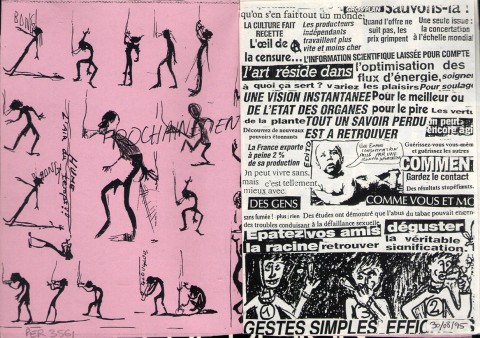 BONG!
PROCHAINEMENT
BONG
PER 3561
Sauvons-la :
qu'on s'en fait tout un monde
LA CULTURE FAIT
RECETTE
L'Œil de
la censure...
Les producteurs
indépendants
travaillent plus
vite et moins cher
Quand l'offre ne
suit pas, les
prix grimpent
Une seule issue :
la concertation
à l'échelle mondiale
L'INFORMATION SCIENTIFIQUE LAISSÉE POUR COMPTE
l'art réside dans l'optimisation des
flux d'énergie, soigner
à quoi ça sert ? variez les plaisirs Pour soulager
UNE VISION INSTANTANEE Pour le meilleur ou
DE L'ETAT DES ORGANES pour le pire Les vertus
de la plante TOUT UN SAVOIR PERDU on peut
encore agir
Découvrez de nouveaux
pouvoirs étonnants
EST A RETROUVER
La France exporte
à peine 2 %
de sa production
EDITO
Guérissez-vous vous-même
et guérissez les autres
COMMENT
Gardez le contact
Des résultats stupéfiants.
On peut vivre sans,
mais c'est tellement
mieux avec.
DES GENS
COMME VOUS ET MOI
sans fumée ! plus ; rien Des études ont démontré que l'abus du tabac pouvait engendrer
des troubles conduisant à la défaillance sexuelle
Epatez vos amis déguster
la racine retrouver la véritable
signification
1
2
GESTES SIMPLES EFFIC
30/08/95